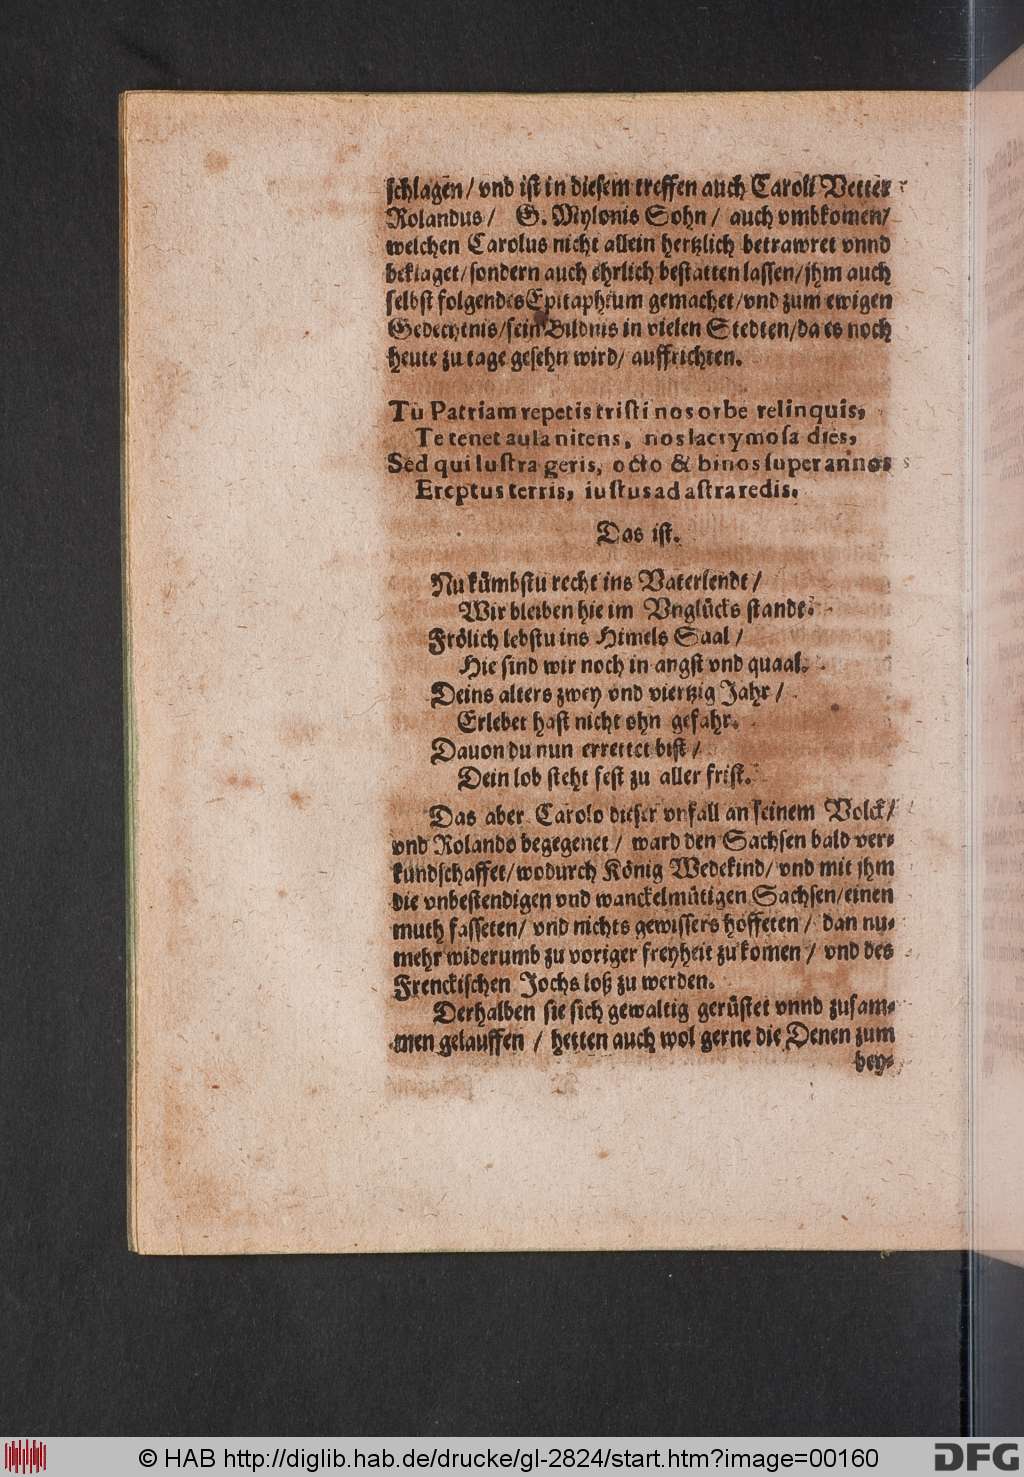 schlagen / vnd ist in diesem treffen auch Caroli Vetter
Rolandus / G. Mylonis Sohn / auch vmbkomen /
welchen Carolus nicht allein hertzlich betrawret vnnd
beklaget / sondern auch ehrlich bestatten lassen / jhm auch
selbst folgendes Epitaphium gemachet / vnd zum ewigen
Gedechtnis / sein Bildnis in vielen Stedten / da es noch
heute zu tage gesehn wird / auffrichten.
Tu Patriam repetis tristi nos orbe relinquis,
Te tenet aula nitens, nos lacrymosa dies,
Sed qui lustra geris, octo & binos super annos
Ereptus terris, iustus ad astra redis.
Das ist.
Nu kümbstu recht ins Vaterlendt /
Wir bleiben hie im Vnglücks standt.
Frölich lebstu ins Himels Saal /
Hie sind wir noch in angst vnd quaal.
Deins alters zwey vnd viertzig Jahr /
Erlebet hast nicht ohn gefahr.
Dauon du nun errettet bist /
Dein lob steht fest zu aller frist.
Das aber Carolo dieser vnfall an seinem Volck /
vnd Rolando begegenet / ward den Sachsen bald ver-
kundschaffet / wodurch König Wedekind / vnd mit jhm
die vnbestendigen vnd wanckelmütigen Sachsen / einen
muth fasseten / vnd nichts gewissers hoffeten / dan nu-
mehr widerumb zu voriger freyheit zu komen / vnd des
Frenckischen Jochs loß zu werden.
Derhalben sie sich gewaltig gerüstet vnnd zusam-
men gelauffen / hetten auch wol gerne die Denen zum
bey-
© HAB http://diglib.hab.de/drucke/gl-2824/start.htm?image=00160
DFG